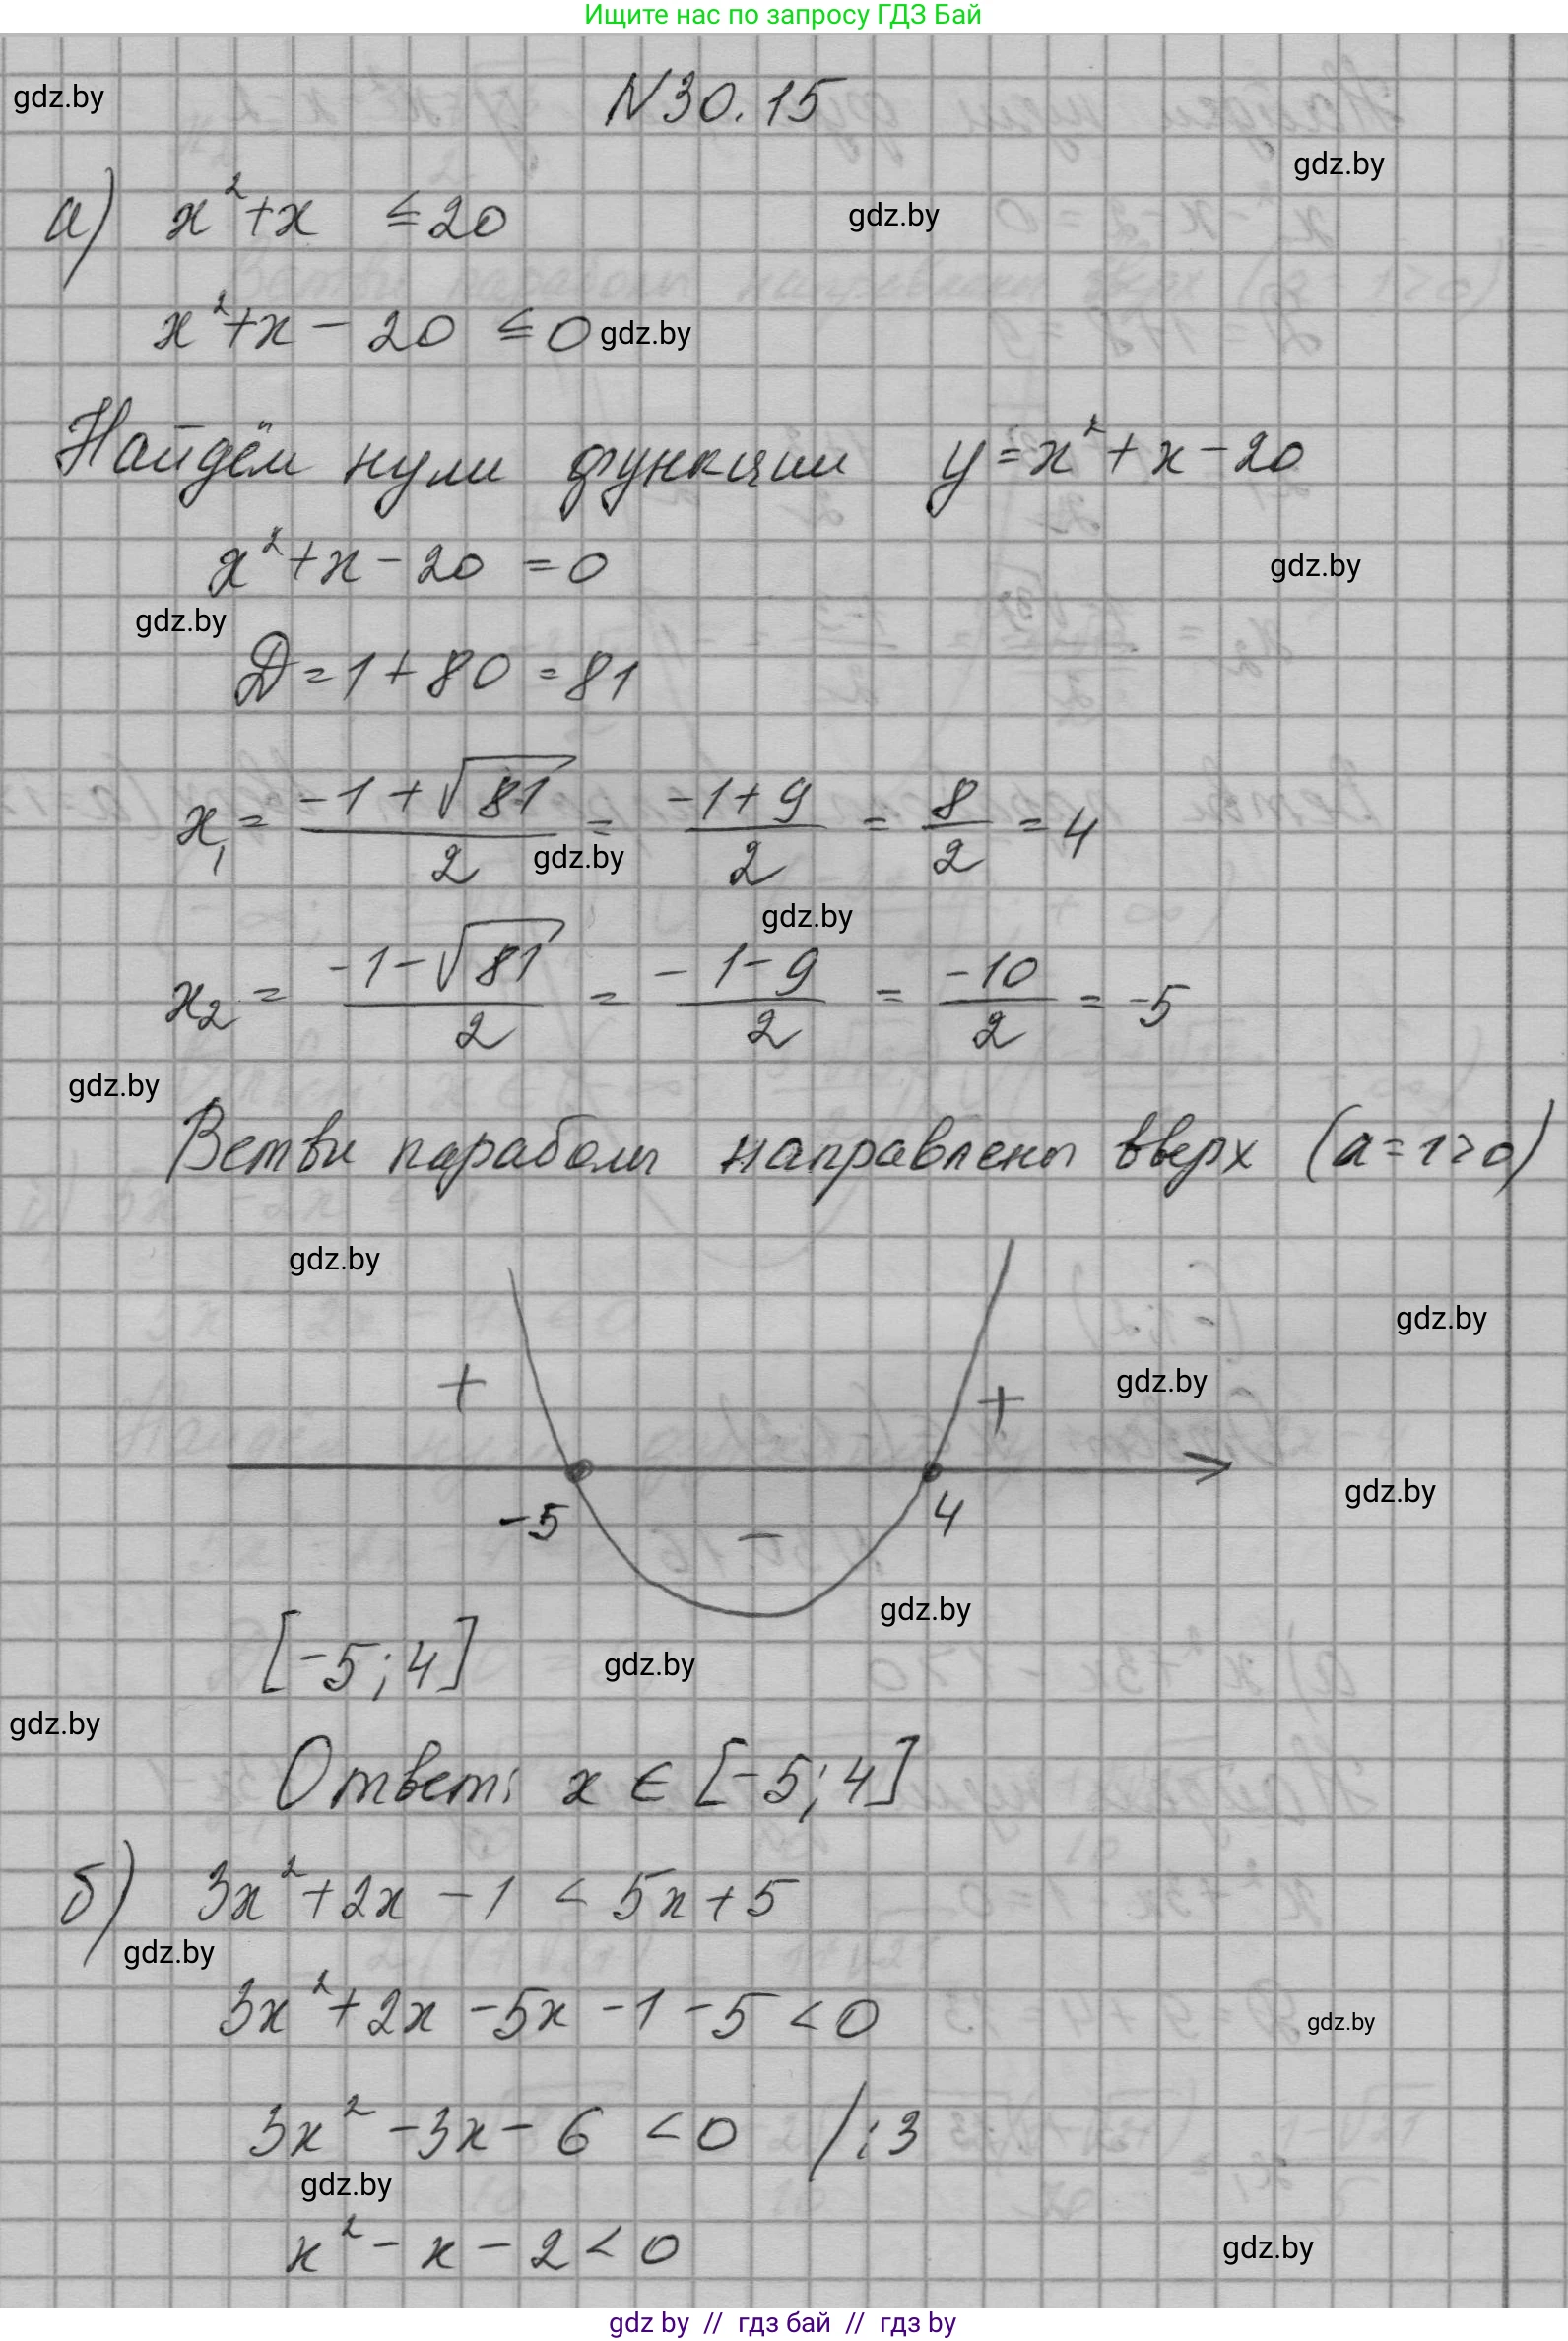 Ищите нас по запросу ГДЗ Бай
N30.15
gdz.by
gdz.by
а) x²+x ≤20
gdz.by
x²+x - 20 ≤0
gdz.by
Найдём нули функции y=x²+x-20
x²+x-20 =0
gdz.by
gdz.by
D=1+80=81
x₁= (-1+√81)/2 = (-1+9)/2 = 8/2 =4
gdz.by
gdz.by
x₂= (-1-√81)/2 = (-1-9)/2 = -10/2 = -5
gdz.by
Ветви параболы направлены вверх (a=1>0)
gdz.by
gdz.by
gdz.by
+ +
gdz.by
-5 - 4
gdz.by
[-5;4]
gdz.by
gdz.by
Ответ: x ∈ [-5;4]
б) 3x²+2x-1 < 5x+5
gdz.by
3x²+2x-5x-1-5<0
gdz.by
3x²-3x-6<0 /:3
gdz.by
x²-x-2<0
gdz.by
gdz by // гдз бай // гдз by